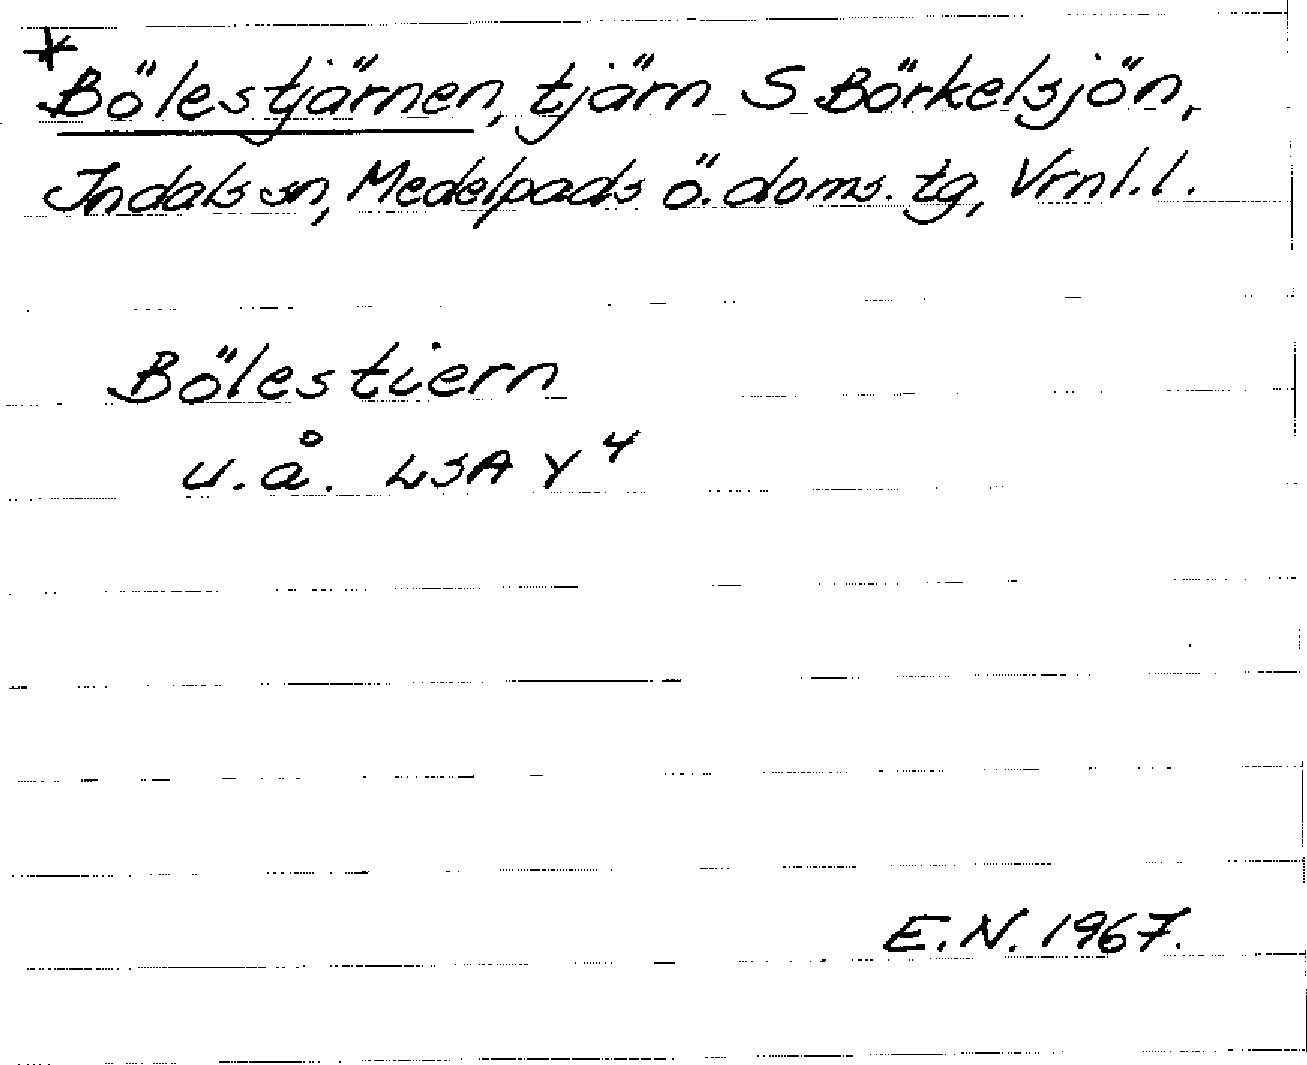 * Bölestjärnen, tjärn S Börkelsjön,
Indals sn, Medelpads ö. doms. tg, Vrnl. l.
Bölestiern
u. å. LSA Y 4
E. N. 1967.